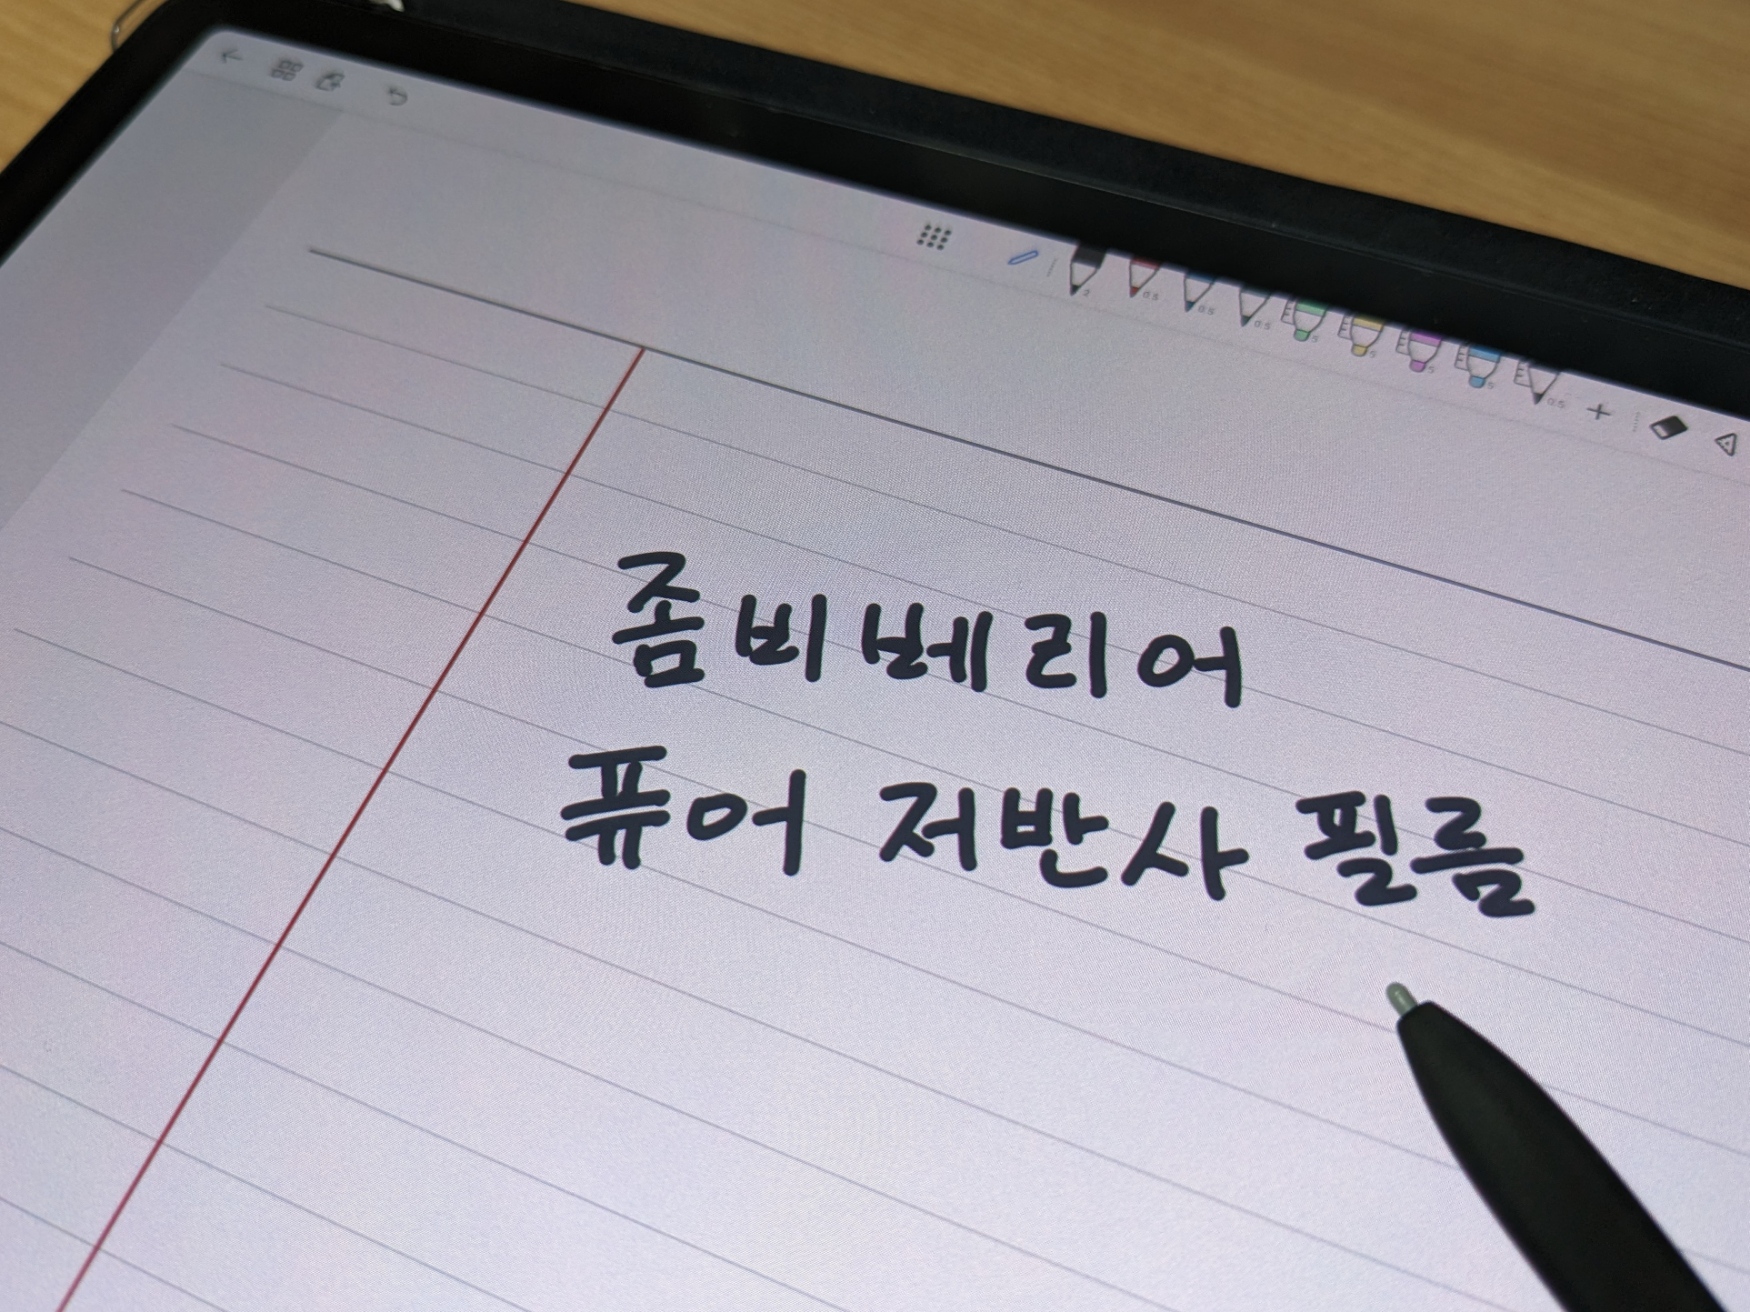 좀비베리어
퓨어 저반사 필름